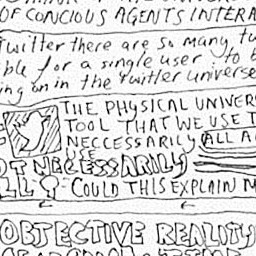 OF CONCIOUS AGENTS INTERA
Twitter there are so many tw
ble for a single user to b
ing on in the Twitter universe
THE PHYSICAL UNIVER
TOOL THAT WE USE T
NECCESSARILY ALL A
OT NECESSARILY
LL? COULD THIS EXPLAIN M
OBJECTIVE REALITY